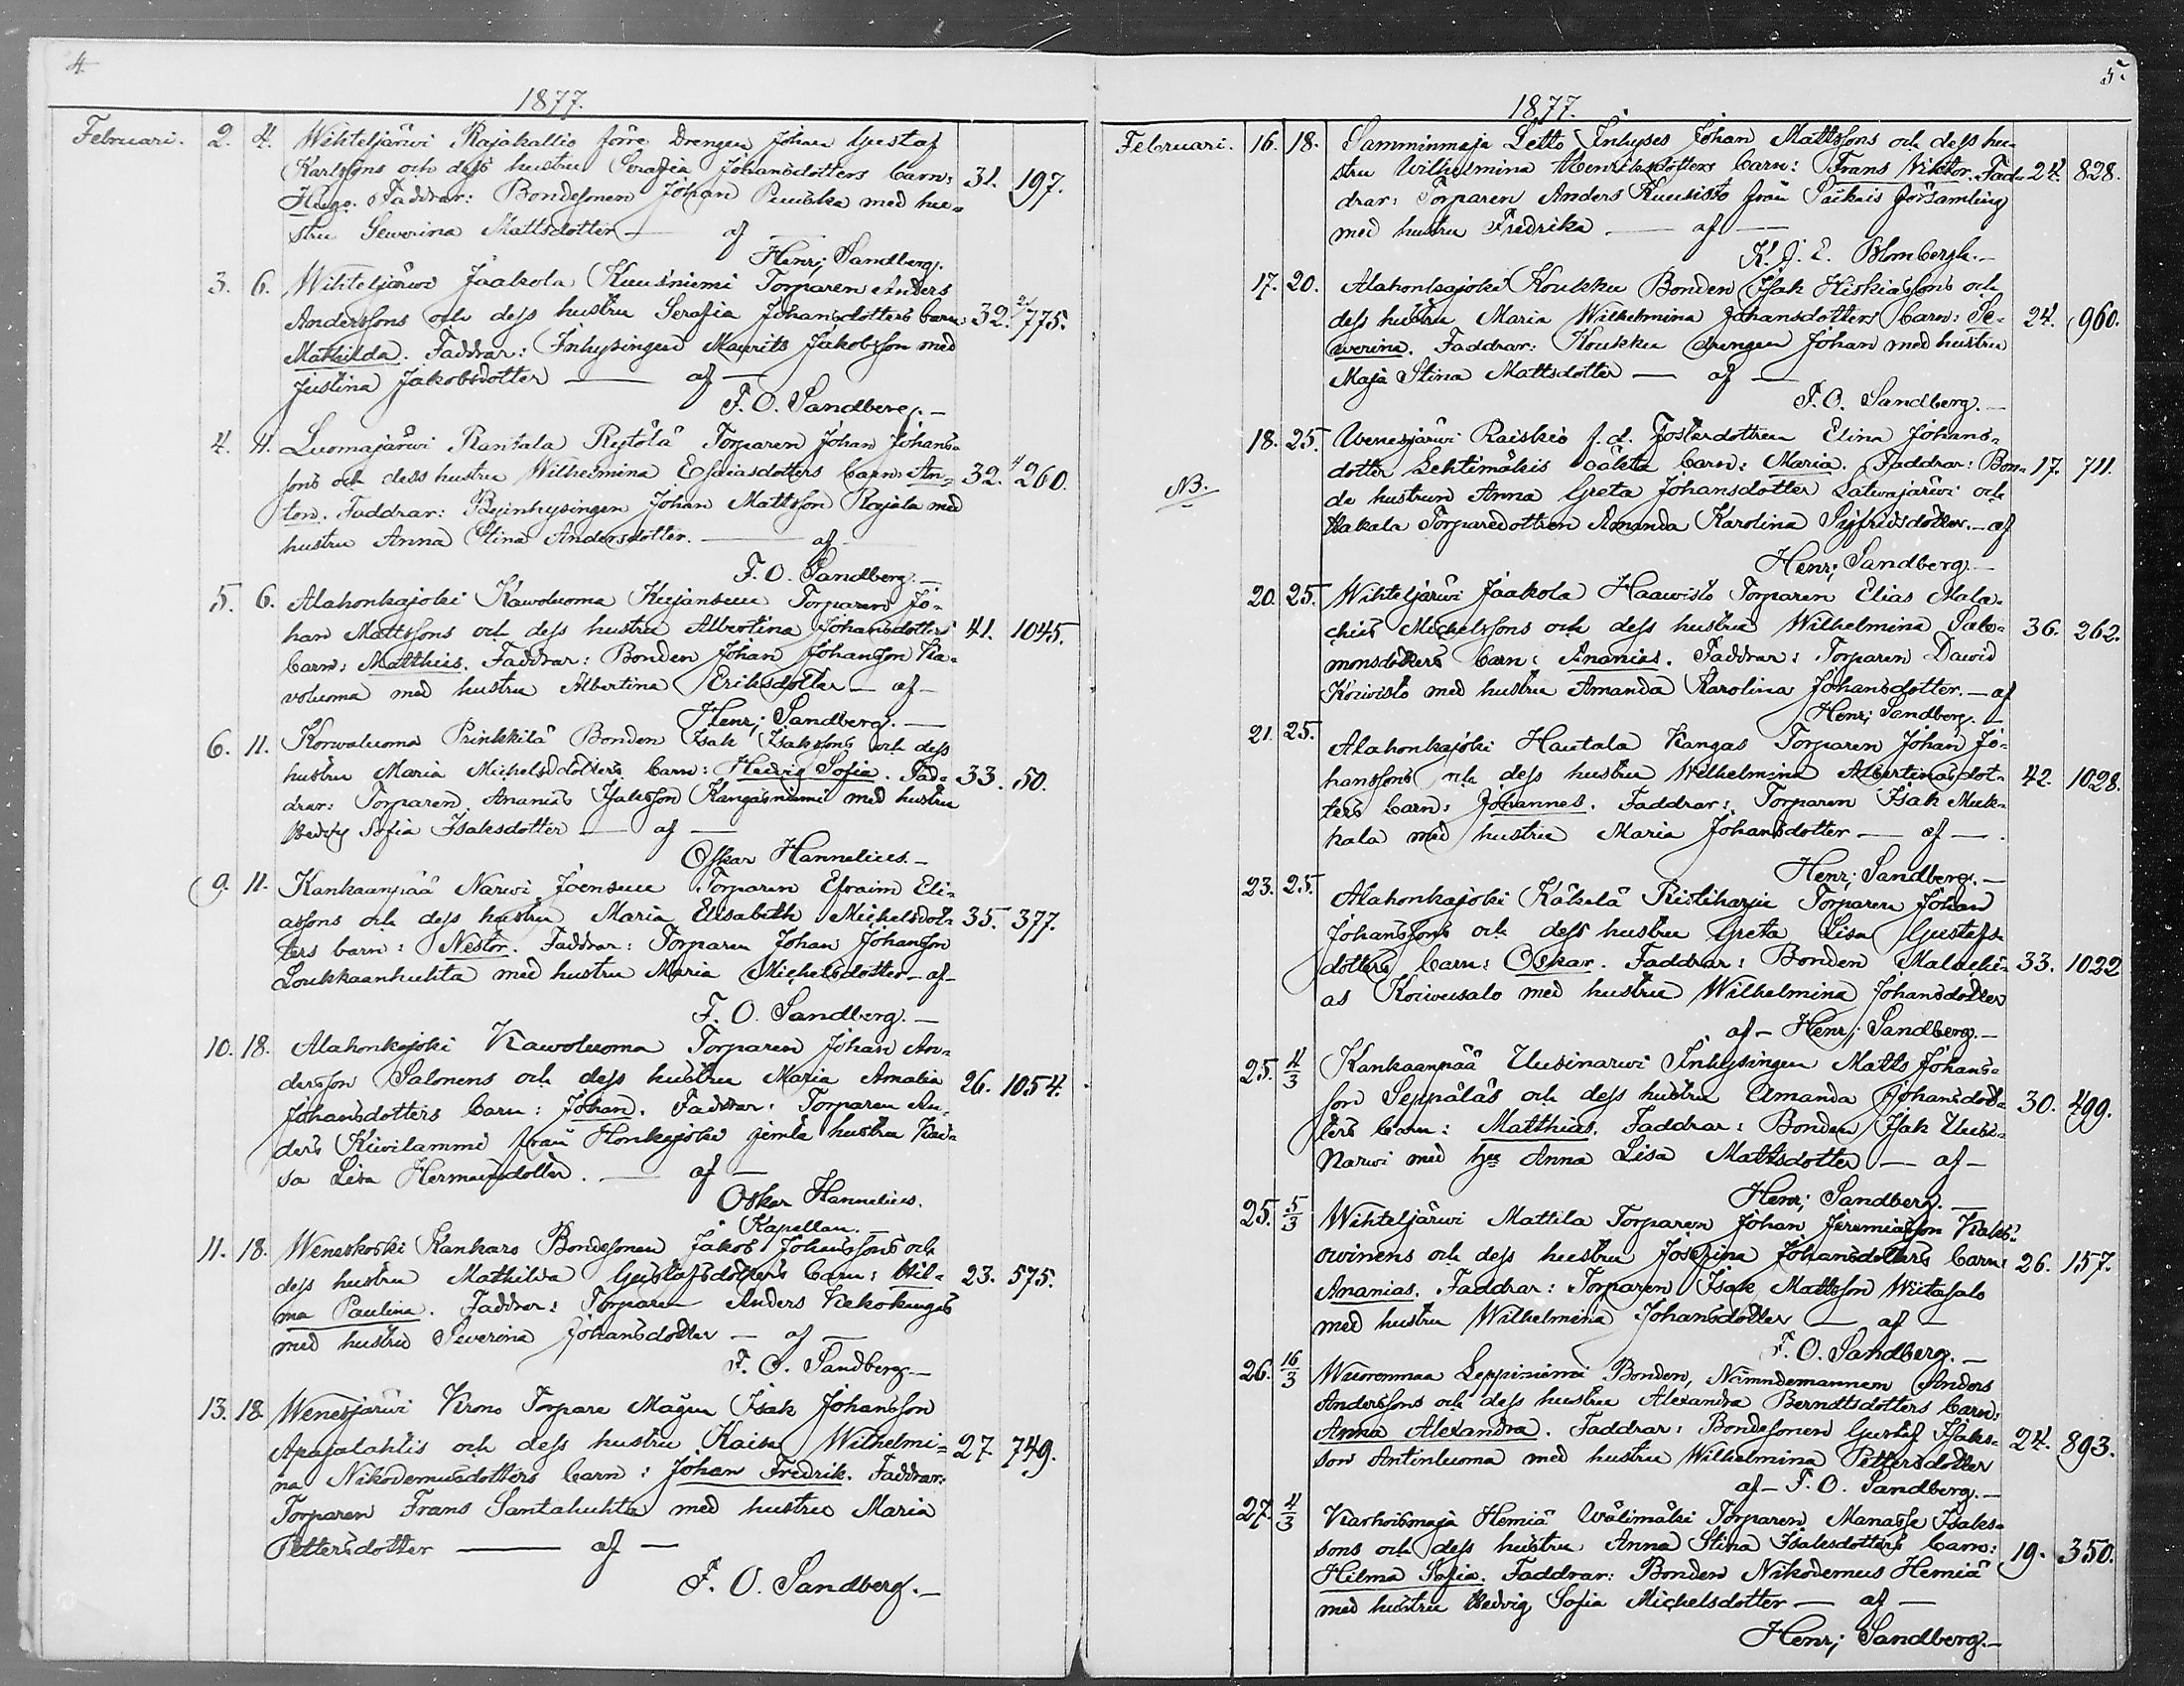 4.
1877.
Februari. 2. 4. Wihteljärwi Rajakallio förre Drengen Johan Gustaf
Karlssons och dess hustru Serafia Johansdotters barn: 31. 197.
Hugo. Faddrar: Bondesonen Johan Penukka med hu-
stru Sewerina Mattsdotter — af —
Henr; Sandberg.
3. 6. Wihteljärwi Jaakola Kuusniemi Torparen Anders
Anderssons och dess hustru Serafia Johansdotters barn: 32. 775.
Mathilda. Faddrar: Inhysingen Maurits Jakobsson med
Justina Jakobsdotter — af —
F. O. Sandberg. —
4. 11. Luomajärwi Rantala Rytölä Torparen Johan Johans-
sons och dess hustru Wilhelmina Esaiasdotters barn: An- 32. 260.
ton. Faddrar: Byinhysingen Johan Mattsson Rajala med
hustru Anna Stina Andersdotter. — af —
F. O. Sandberg. —
5. 6. Alahonkajoki Kawoluoma Kujansuu Torparen Jo-
han Mattssons och dess hustru Albertina Johansdotters 41. 1045.
barn: Matthias. Faddrar: Bonden Johan Johansson Ka-
voluoma med hustru Albertina Eriksdotter — af —
Henr; Sandberg. —
6. 11. Korwaluoma Prinkkilä Bonden Isak Isakssons och dess
hustru Maria Michelsdotters barn: Hedvig Sofia. Fad- 33. 50.
drar: Torparen Ananias Isaksson Kangasniemi med hustru
Hedvig Sofia Isaksdotter — af —
Oskar Hannelius. —
9. 11. Kankaanpää Narwi Joensuu Torparen Efraim Eli-
assons och dess hustru Maria Elisabeth Michelsdot- 35. 377.
ters barn: Nestor. Faddrar: Torparen Johan Johansson
Loukkaanhuhta med hustru Maria Michelsdotter — af —
F. O. Sandberg. —
10. 18. Alahonkajoki Kawoluoma Torparen Johan An-
dersson Salonens och dess hustru Maria Amalia 26. 1054.
Johansdotters barn: Johan. Faddrar: Torparen An-
ders Kiwilammi från Honkajoki jemte hustru Kai-
sa Lisa Hermansdotter. — af —
Oskar Hannelius.
Kapellan. —
11. 18. Weneskoski Kankare Bondesonen Jakob Johanssons och
dess hustru Mathilda Gustafsdotters barn: Hil- 23. 575.
ma Paulina. Faddrar: Torparen Anders Kekokangas
med hustru Severina Johansdotter — af —
F. O. Sandberg. —
13. 18. Wenesjärwi Krono Torpare Mågen Isak Johansson
Apajalahtis och dess hustru Kaisa Wilhelmi- 27. 749.
na Nikodemusdotters barn: Johan Fredrik. Faddrar:
Torparen Frans Santahuhta med hustru Maria
Pettersdotter — af —
F. O. Sandberg. —
5.
1877.
Februari. 16. 18. Samminmaja Letto Inhyses Johan Mattssons och dess hu-
stru Wilhelmina Henriksdotters barn: Frans Viktor. Fad- 24. 828.
drar: Torparen Anders Kuusisto från Siikais församling
med hustru Fredrika — af —
K. J. E. Blombergh. —
17. 20. Alahonkajoki Koukku Bonden Isak Hiskiassons och
dess hustru Maria Wilhelmina Johansdotters barn: Se- 24. 960.
werina. Faddrar: Koukku drengen Johan med hustru
Maja Stina Mattsdotter — af —
F. O. Sandberg. —
18. 25. Wenesjärwi Raiskio f. d. Fosterdottren Elina Johans-
dotter Lehtimäkis oäkta barn: Maria. Faddrar: Bon- 17. 711.
NB.
de hustrun Anna Greta Johansdotter Latwajärwi och
Hakala Torparedottren Amanda Karolina Sigfridsdotter. — af
Henr; Sandberg. —
20. 25. Wihteljärwi Jaakola Haawisto Torparen Elias Mala-
chias Michelssons och dess hustru Wilhelmina Salo- 36. 262.
monsdotters barn: Ananias. Faddrar: Torparen David
Koiwisto med hustru Amanda Karolina Johansdotter. — af
Henr; Sandberg. —
21. 25. Alahonkajoki Hautala Kangas Torparen Johan Jo-
hanssons och dess hustru Wilhelmina Albertinasdot- 42. 1028.
ters barn: Johannes. Faddrar: Torparen Isak Muk-
kala med hustru Maria Johansdotter — af —.
Henr; Sandberg. —
23. 25. Alahonkajoki Kätsilä Ristiharju Torparen Johan
Johanssons och dess hustru Greta Lisa Gustafs-
dotters barn: Oskar. Faddrar: Bonden Malachi- 33. 1022
as Koiwusalo med hustru Wilhelmina Johansdotter
af — Henr; Sandberg. —
25. 4/3 Kankaanpää Uusinarwi Inhysingen Matts Johans-
son Seppäläs och dess hustru Amanda Johansdot- 30. 499.
ters barn: Matthias. Faddrar: Bonden Isak Uusi-
Narwi med h:u Anna Lisa Mattsdotter — af —
Henr; Sandberg. —
25. 5/3 Wihteljärwi Mattila Torparen Johan Jeremiasson Kaks-
owinens och dess hustru Josefina Johansdotters barn: 26. 157.
Ananias. Faddrar: Torparen Isak Mattsson Wiitasalo
med hustru Wilhelmina Johansdotter — af —
F. O. Sandberg. —
26. 16/3 Wuorenmaa Leppiniemi Bonden, Nämndemannen Anders
Anderssons och dess hustru Alexandra Berndtsdotters barn:
Anna Alexandra. Faddrar: Bondesonen Gustaf Isaks- 24. 893.
son Antinluoma med hustru Wilhelmina Pettersdotter
af — F. O. Sandberg. —
27. 4/3 Karhoismaja Hemiä Wälimäki Torparen Manasse Isaks-
sons och dess hustru Anna Stina Isaksdotters barn: 19. 350.
Hilma Sofia. Faddrar: Bonden Nikodemus Hemiä
med hustru Hedvig Sofia Michelsdotter — af —
Henr; Sandberg. —